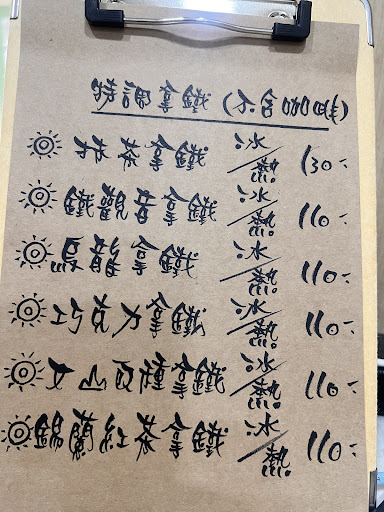 特調拿鐵(不含咖啡)
抹茶拿鐵 冰/熱 130.-
鐵觀音拿鐵 冰/熱 110.-
烏龍拿鐵 冰/熱 110.-
巧克力拿鐵 冰/熱 110.-
文山百種拿鐵 冰/熱 110.-
錫蘭紅茶拿鐵 冰/熱 110.-